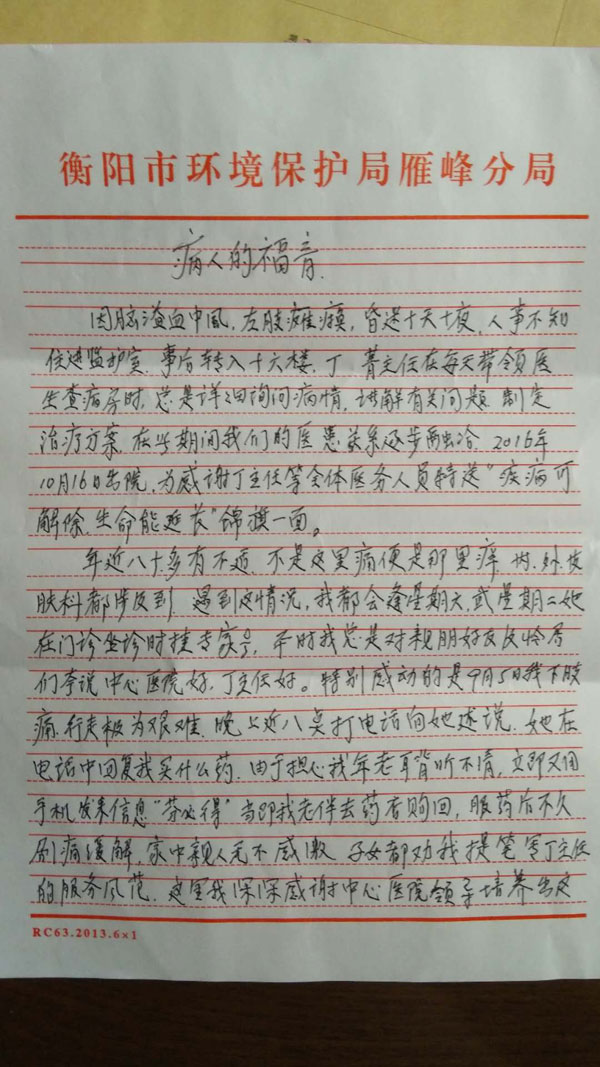 衡阳市环境保护局雁峰分局
病人的福音.
因脑溢血中风,左肢瘫痪,昏迷十天十夜,人事不知
住进监护室.事后转入十六楼,丁菁主任在每天带领医
生查病房时,总是详细询问病情,讲解有关问题.制定
治疗方案.在此期间我们的医患关系逐步融洽.2016年
10月16日出院,为感谢丁主任等全体医务人员特送"疾病可
解除,生命能延长"锦旗一面。
年近八十,多有不适.不是这里痛便是那里痒.内、外、皮
肤科都涉及到.遇到这情况,我都会逢星期六,或星期二她
在门诊坐诊时挂专家号,平时我总是对亲朋好友及邻居
们夸说中心医院好,丁主任好。特别感动的是9月5日我下肢
痛,行走极为艰难.晚上近八点打电话向她述说.她在
电话中回复我买什么药.由于担心我年老耳背听不清,立即又用
手机发来信息"芬必得"当即我老伴去药店购回,服药后不久
剧痛缓解.家中亲人无不感激.子女都劝我提笔写丁主任
的服务风范.这里我深深感谢中心医院领导培养出这
RC63.2013.6×1